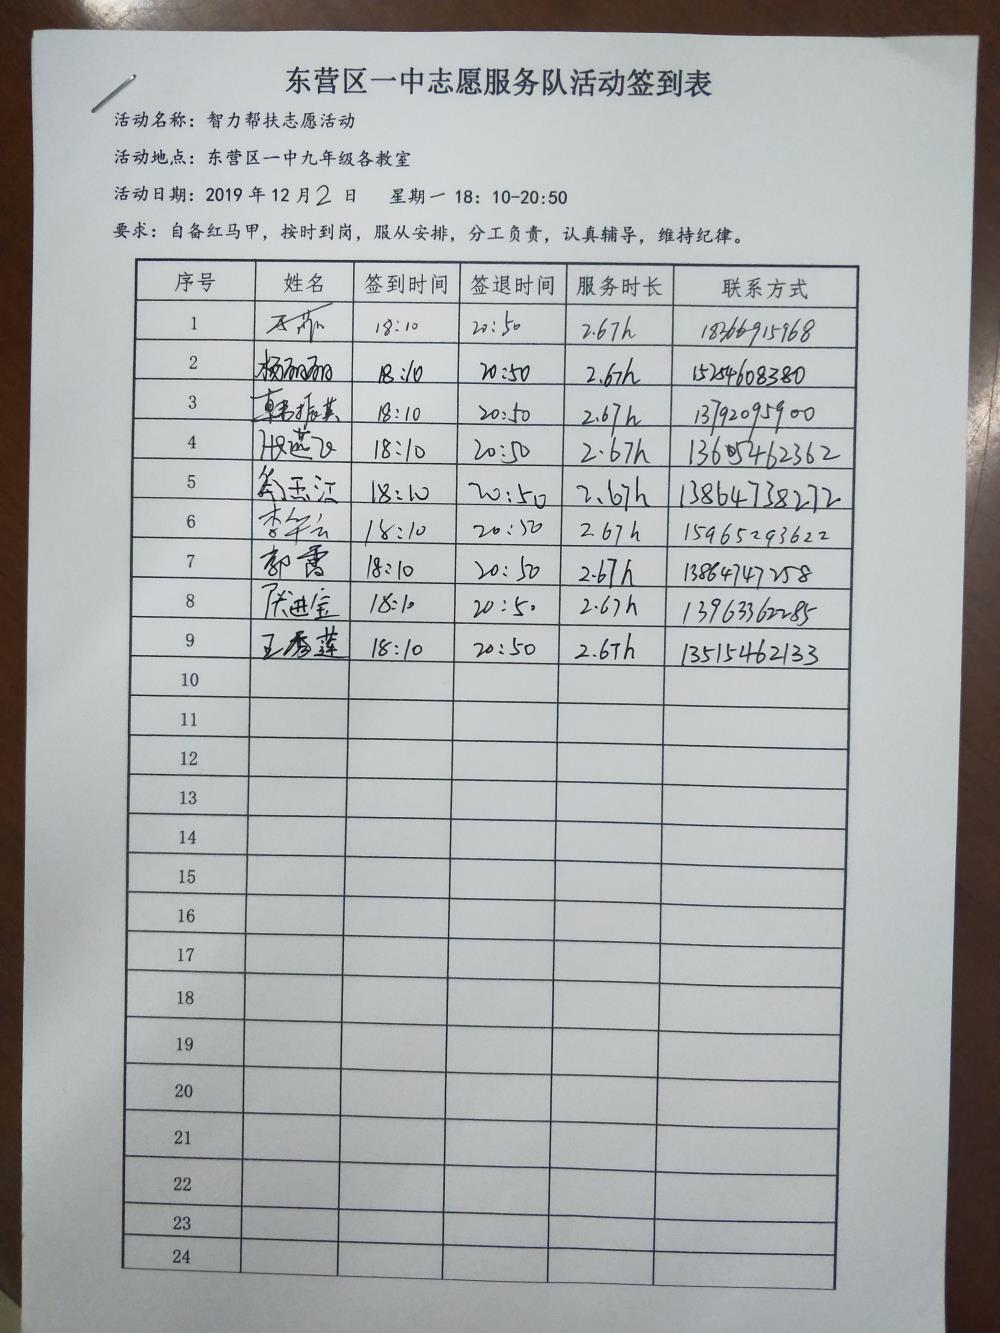 东营区一中志愿服务队活动签到表
活动名称：智力帮扶志愿活动
活动地点：东营区一中九年级各教室
活动日期：2019 年 12 月 2 日 星期一 18：10-20:50
要求：自备红马甲，按时到岗，服从安排，分工负责，认真辅导，维持纪律。
序号 姓名 签到时间 签退时间 服务时长 联系方式
1 18:10 20:50 2.67h 18366915968
2 杨丽丽 18:10 20:50 2.67h 15254608380
3 韩振英 18:10 20:50 2.67h 13792095900
4 18:10 20:50 2.67h 13605462362
5 18:10 20:50 2.67h 13864738272
6 18:10 20:50 2.67h 15965293622
7 郭 18:10 20:50 2.67h 13864747258
8 进宝 18:10 20:50 2.67h 13963362285
9 王秀莲 18:10 20:50 2.67h 13515462133
10
11
12
13
14
15
16
17
18
19
20
21
22
23
24